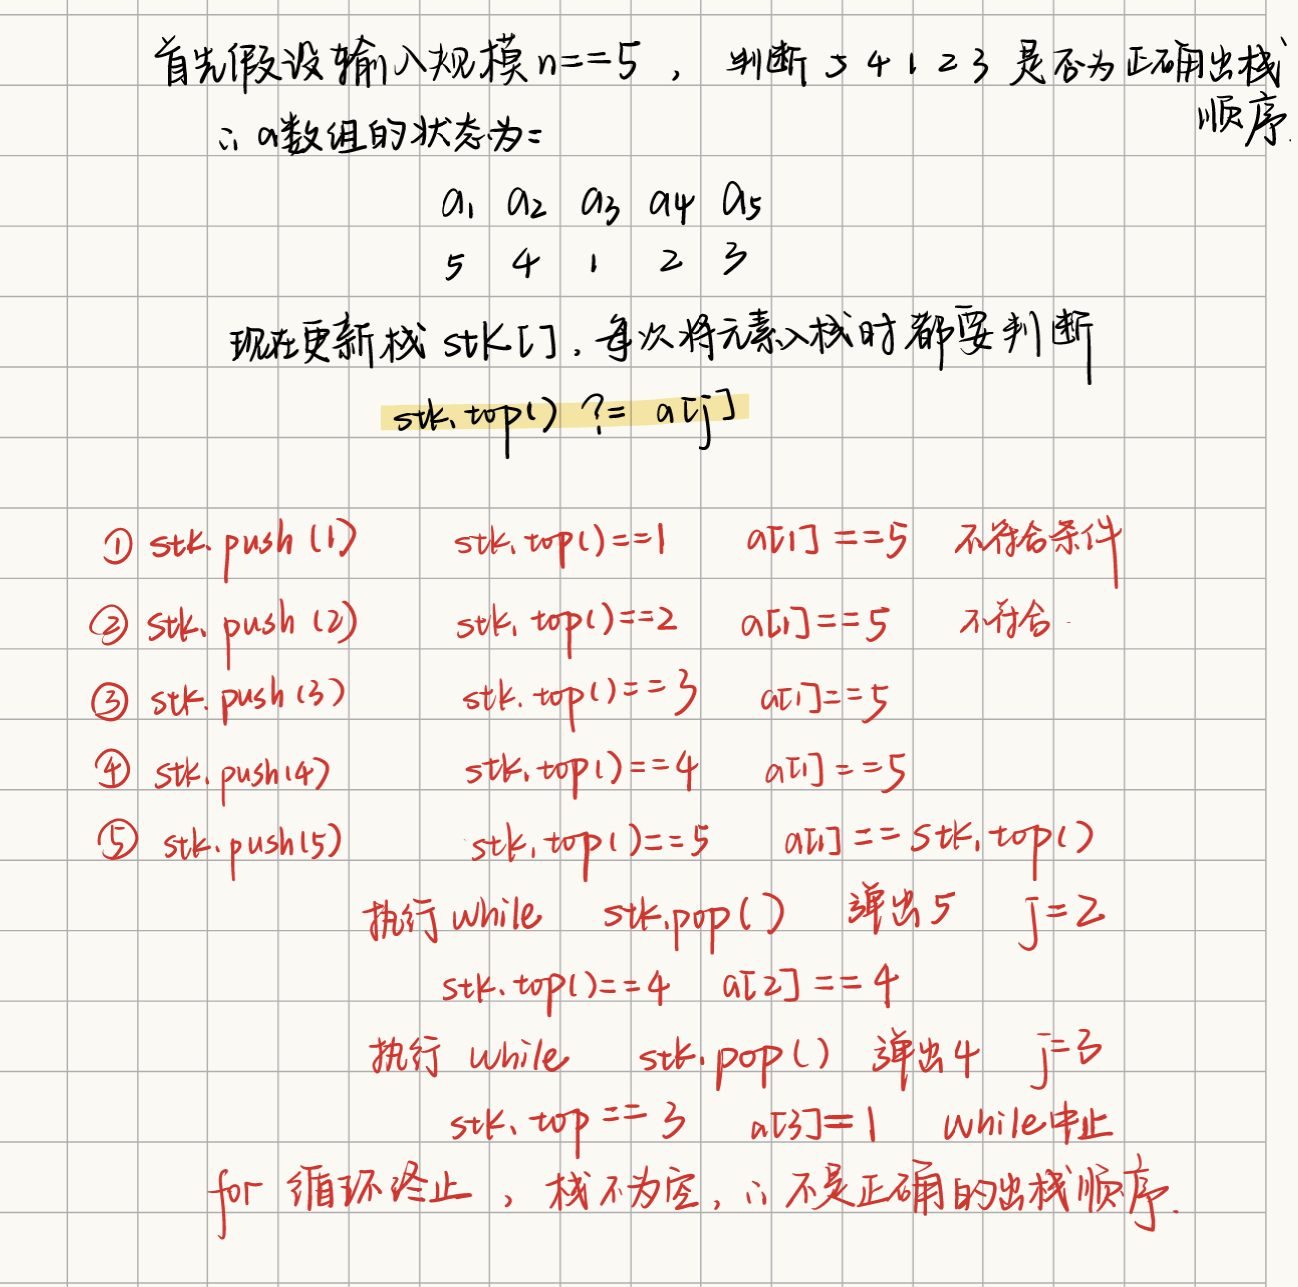 首先假设输入规模n==5，判断 5 4 1 2 3 是否为正确出栈
顺序.
∴ a数组的状态为=
a1 a2 a3 a4 a5
5 4 1 2 3
现在更新栈 stk[]，每次将元素入栈时都要判断
stk.top() ?= a[j]
① stk.push(1) stk.top()==1 a[1]==5 不符合条件
② stk.push(2) stk.top()==2 a[1]==5 不符合.
③ stk.push(3) stk.top()==3 a[1]==5
④ stk.push(4) stk.top()==4 a[1]==5
⑤ stk.push(5) stk.top()==5 a[1]==stk.top()
执行while stk.pop() 弹出5 j=2
stk.top()==4 a[2]==4
执行 while stk.pop() 弹出4 j=3
stk.top==3 a[3]=1 while中止
for 循环终止，栈不为空，∴ 不是正确的出栈顺序.